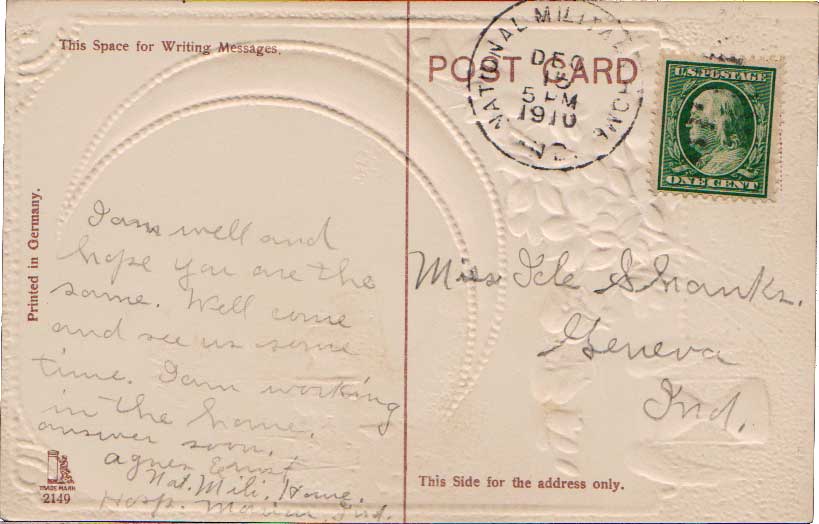 This Space for Writing Messages.
POST CARD
NATIONAL MILITARY HOME
DEC
5 PM
1910
IND.
U.S. POSTAGE
ONE CENT
Printed in Germany.
I am well and
hope you are the
same. Well come
and see us some
time. I am working
in the home.
answer soon.
Agnes Ernst
Nat. Mili. Home.
Hosp. Marion, Ind.
Miss Icle Shanks.
Geneva
Ind.
This Side for the address only.
TRADE MARK
2149